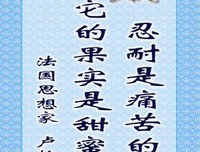 忍耐是痛苦的
它的果实是甜蜜
法国思想家 卢